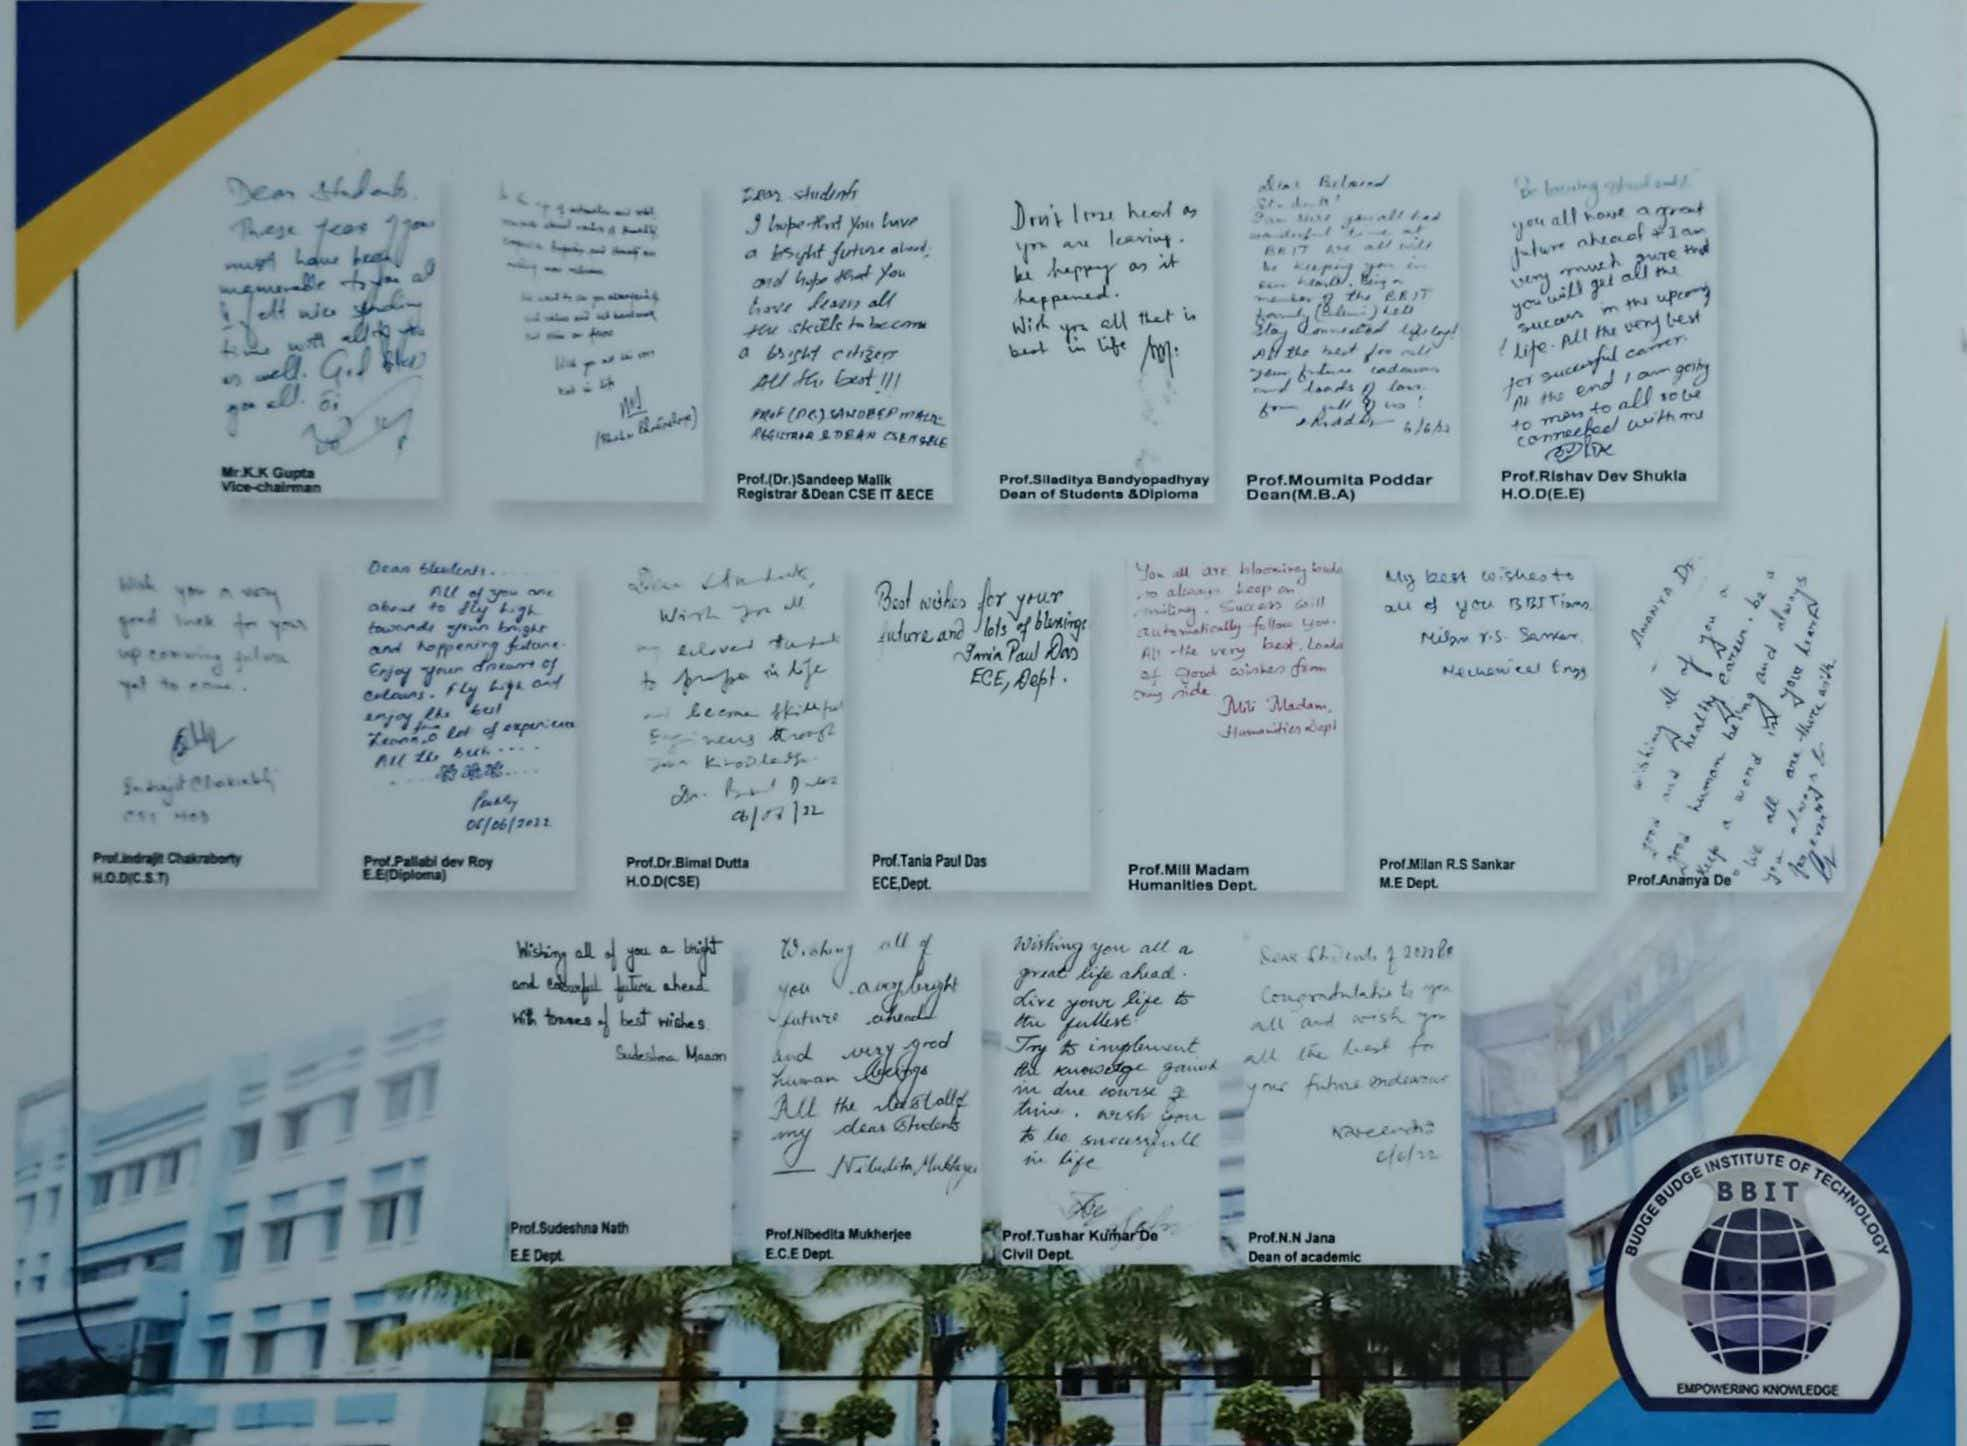 Dear Students.
These years of your
must have been
memorable to you all
I felt nice spending
time with all of you
as well. God bless
you all.
Mr.K.K Gupta
Vice-chairman
Wish you all the very
best in life
Dear students
I hope that you have
a bright future ahead,
and hope that you
have learn all
the skills to become
a bright citizen
All the best !!!
PROF (DR.) SANDEEP MALIK
REGISTRAR & DEAN CSE IT & ECE
Prof.(Dr.)Sandeep Malik
Registrar &Dean CSE IT &ECE
Don't lose heart as
you are leaving.
be happy as it
happened.
Wish you all that is
best in life
Prof.Siladitya Bandyopadhyay
Dean of Students &Diploma
Dear Beloved
Students!
I am sure you all had
wonderful time at
BBIT we all will
be keeping you in
our hearts. Being a
member of the BBIT
family
Stay connected
All the best for all
your future endeavours
and loads of love
from all of us!
6/6/22
Prof.Moumita Poddar
Dean(M.B.A)
you all have a great
future ahead & I am
very much sure that
you will get all the
success in the upcoming
life. All the very best
for successful career.
At the end I am going
to mess to all to be
connected with me
Prof.Rishav Dev Shukla
H.O.D(E.E)
Wish you a very
good luck for your
upcoming future
yet to come.
Indrajit Chakraborty
CST HOD
Prof.Indrajit Chakraborty
H.O.D(C.S.T)
Dear Students.....
All of you are
about to fly high
towards your bright
and happening future.
Enjoy your dreams of
colours. Fly high and
enjoy the best
lot of experience
All the best ....
06/06/2022
Prof.Pallabi dev Roy
E.E(Diploma)
Dear Students,
Wish you all
my beloved students
to prosper in life
and become skillful
Engineers through
your knowledge.
Dr. Bimal Dutta
06/06/22
Prof.Dr.Bimal Dutta
H.O.D(CSE)
Best wishes for your
future and lots of blessings
Tania Paul Das
ECE, Dept.
Prof.Tania Paul Das
ECE,Dept.
You all are blooming buds
so always keep on
smiling. Success will
automatically follow you.
All the very best. Loads
of good wishes from
my side
Mili Madam,
Humanities Dept
Prof.Mili Madam
Humanities Dept.
My best wishes to
all of you BBITians
Milan r.s. Sankar
Mechanical Engg
Prof.Milan R.S Sankar
M.E Dept.
Wishing all of you a
good and healthy career, be a
good human being and always
keep a word in your hearts
we all are there with
you always &
forever
- ANANYA DE
Prof.Ananya De
Wishing all of you a bright
and colourful future ahead
with tonnes of best wishes.
Prof.Sudeshna Nath
E.E Dept.
Wishing all of
you a very bright
future ahead
and very good
human beings
All the best all of
my dear students
— Nibedita Mukherjee
Prof.Nibedita Mukherjee
E.C.E Dept.
Wishing you all a
great life ahead.
Live your life to
the fullest.
Try to implement
the knowledge gained
in due course of
time. wish you
to be successfull
in life
Prof.Tushar Kumar De
Civil Dept.
Dear Students of 2022
Congratulation to you
all and wish you
all the best for
your future endeavour
6/6/22
Prof.N.N Jana
Dean of academic
BUDGE BUDGE INSTITUTE OF TECHNOLOGY
BBIT
EMPOWERING KNOWLEDGE